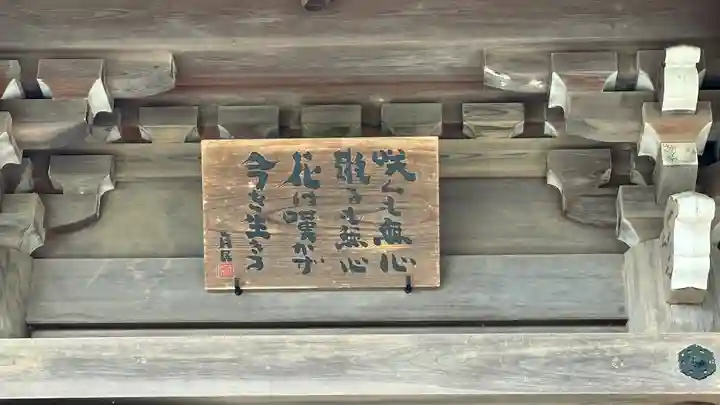 咲くも無心
散るも無心
花は嘆かず
今を生きる